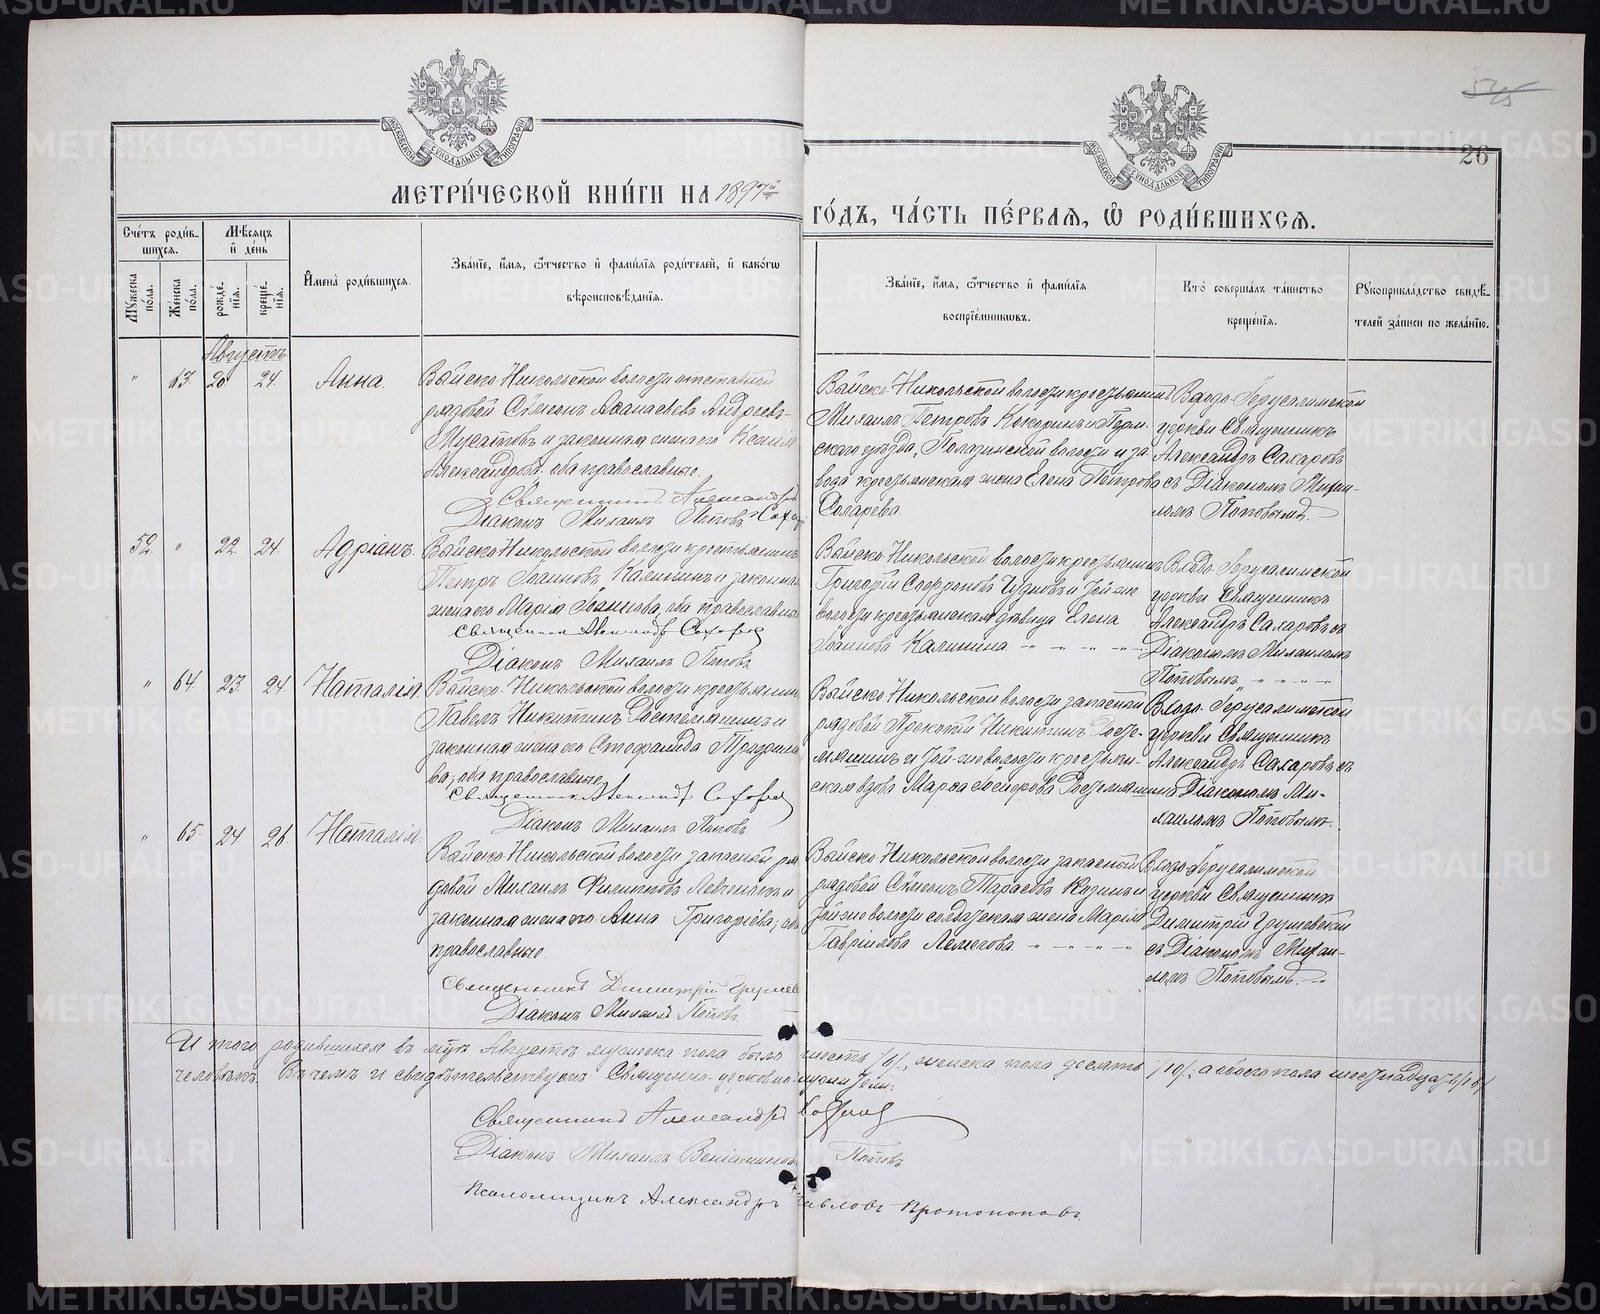 26
МЕТРИ́ЧЕСКОЙ КНИ́ГИ НА 1897й
ГО́ДЪ, ЧА́СТЬ ПЕ́РВАѦ, Ѽ РОДИ́ВШИХСѦ.
Сче́тъ роди́в-
шихсѧ.
Мѣ́сѧцъ
и҆ де́нь
Мꙋ́жеска
по́ла.
Же́нска
по́ла.
рожде́-
нїѧ.
креще́-
нїѧ.
И҆мена̀ роди́вшихсѧ.
Зва́нїе, и҆́мѧ, ѻ҆́тчество и҆ фами́лїѧ роди́телей, и҆ како́гѡ
вѣроисповѣ́данїѧ.
Зва́нїе, и҆́мѧ, ѻ҆́тчество и҆ фами́лїѧ
воспрїе́мникѡвъ.
Кто̀ соверша́лъ та́инство
креще́нїѧ.
Рꙋкоприкла́дство свидѣ́-
телей за́писи по жела́нїю.
Августъ
" 63. 20 24. Анна.
Войско-Никольской волости отставной
рядовой Сѵмеонъ Андреевъ
и законная жена его Ксенія
Александрова, оба православные.
Священникъ Александръ
Діаконъ Михаилъ Поповъ
Войско-Никольской волости крестьянинъ
Михаилъ Петровъ Кокоринъ и Перм-
скаго уѣзда, волости и за-
вода крестьянская жена Елена Петрова
Входо-Іерусалимской
церкви Священникъ
Александръ Сахаровъ
съ Діакономъ Михаи-
ломъ Поповымъ.
52. " 22. 24. Адріанъ.
Войско-Никольской волости крестьянинъ
Петръ Іоанновъ Калининъ и законная
жена его Марія, оба православные
Священникъ Александръ Сахаровъ
Діаконъ Михаилъ Поповъ.
Войско-Никольской волости крестьянинъ
Григорій Софроновъ и той-же
волости крестьянская дѣвица Елена
Іоаннова Калинина
Входо-Іерусалимской
церкви Священникъ
Александръ Сахаровъ съ
Діакономъ Михаиломъ
Поповымъ
" 64. 23. 24. Наталія.
Войско-Никольской волости крестьянинъ
Павелъ Никитинъ и
законная жена его
оба православные
Священникъ Александръ Сахаровъ
Діаконъ Михаилъ Поповъ
Войско-Никольской волости запасной
рядовой Прокопій Никитинъ
и той-же волости крестьян-
ская вдова
Входо-Іерусалимской
церкви Священникъ
Александръ Сахаровъ съ
Діакономъ Ми-
хаиломъ Поповымъ.
" 65. 24. 26. Наталія.
Войско-Никольской волости запасной ря-
довой Михаилъ Филиповъ и
законная жена его Анна Григоріева;
православные.
Священникъ Димитрій
Діаконъ Михаилъ Поповъ.
Войско-Никольской волости запасной
рядовой Сѵмеонъ Тарасовъ и
той-же волости солдатская жена Марія
Гавріилова
Входо-Іерусалимской
церкви Священникъ
Димитрій
съ Діакономъ Михаи-
ломъ Поповымъ.
И того родившихся въ м-цѣ Августѣ мужеска пола было шесть /6/, женска пола десять /10/, а обоего пола шестнадцать /16/
человѣкъ. Въ чемъ и свидѣтельствуемъ Священно-церковно-служители:
Священникъ Александръ Сахаровъ
Діаконъ Михаилъ Веніаминовъ Поповъ
Псаломщикъ Александръ Павловъ Протопоповъ.
METRIKI.GASO-URAL.RU